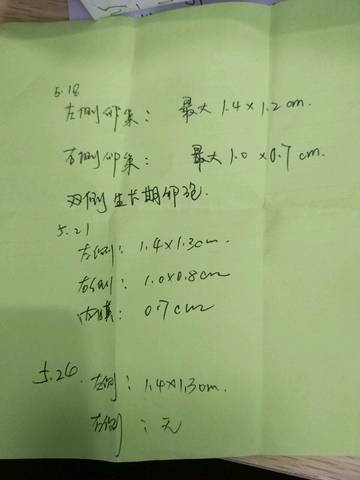 5.18
左侧卵巢： 最大 1.4×1.2cm.
右侧卵巢： 最大 1.0×0.7cm.
双侧生长期卵泡.
5.21
左侧： 1.4×1.3cm.
右侧： 1.0×0.8cm
内膜： 0.7cm
5.24. 左侧：1.4×1.3cm.
右侧：无